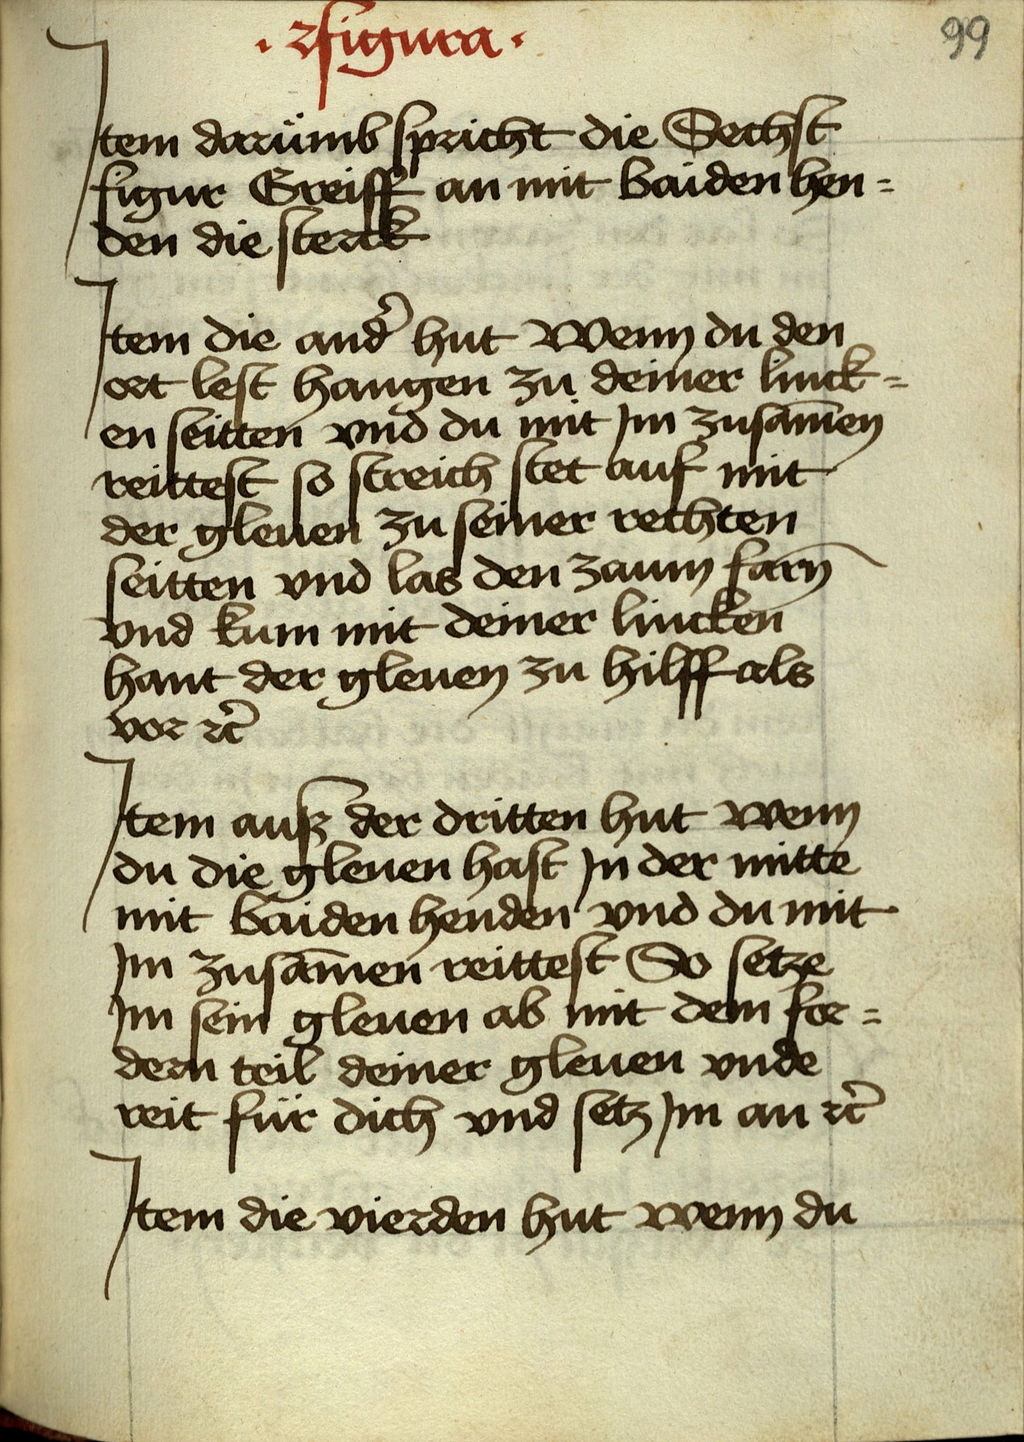 · 2figura ·
99
Item darümb spricht die Sechst
figur Greiff an mit baiden hen=
den die sterck
Item die and̉ hut Wenn du den
ort lest hangen zu deiner linck=
en seitten vnd du mit Im zusam̄en
reittest so streich stet auf mit
der gleuen zu seiner rechten
seitten vnd las den zaum farn
vnd kum mit deiner lincken
hant der gleuen zu hilff als
vor ꝛc̉
Item ausz der dritten hut wenn
du die gleuen hast In der mitte
mit baiden henden vnd du mit
Im zusam̄en reittest So setze
Im sein gleuen ab mit dem for=
dern teil deiner gleuen vnde
reit für dich vnd setz Im an ꝛc̉
Item die vierden hut wenn du